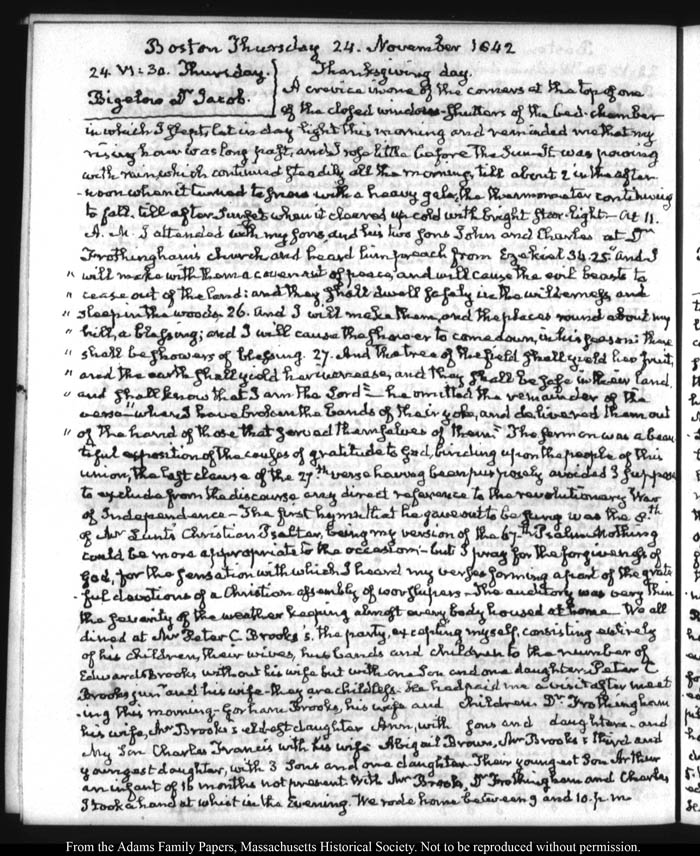 Boston Thursday 24. November 1842
24. VI:30. Thursday. Thanksgiving day.
Bigelow Dr Jacob. A crevice in one of the corners at the top of one
of the closed window-shutters of the bed-chamber
in which I slept, let in day light this morning and reminded me that my
rising hour was long past, and I rose little before the Sun. It was pouring
with rain, which continued steadily all the morning, till about 2 in the after
-noon when it turned to snow with a heavy gale, the thermometer continuing
to fall, till after Sunset when it cleared up cold with bright star-light. At 11.
A. M. I attended with my sons, and his two sons John and Charles at Dr
Frothingham's church and heard him preach from Ezekiel 34.25. and I
" will make with them a covenant of peace, and will cause the evil beasts to
" cease out of the land: and they shall dwell safely in the wilderness, and
" sleep in the woods. 26. And I will make them, and the places round about my
" hill, a blessing; and I will cause the shower to come down, in his season: there
" shall be showers of blessing. 27. And the tree of the field shall yield her fruit,
" and the earth shall yield her increase, and they shall be safe in their land,
" and shall know that I am the Lord" — he omitted the remainder of the
verse "when I have broken the bands of their yoke, and delivered them out
" of the hand of those that served themselves of them." The sermon was a beau
tiful exposition of the causes of gratitude to God, binding upon the people of this
union, the last clause of the 27th verse having been purposely avoided I suppose
to exclude from the discourse any direct reference to the revolutionary War
of Independence — The first hymn that he gave out to be sung was the 8th
of Mr Lunt's Christian Psalter, being my version of the 67th Psalm. Nothing
could be more appropriate to the occasion; but I pray for the forgiveness of
God, for the sensation with which I heard my verses forming a part of the grate
-ful devotions of a Christian assembly of worshipers. The auditory was very thin
the severity of the weather keeping almost every body housed at home. We all
dined at Mr Peter C. Brooks's. the party, excepting myself, consisting entirely
of his children, their wives, husbands and children to the number of
Edward Brooks without his wife but with one Son and one daughter. Peter C.
Brooks junr and his wife. they are childless. He had paid me a visit after meet
-ing this morning. Gorham Brooks, his wife and children. Dr Frothingham
his wife, Mr Brooks's eldest daughter Ann, with sons and daughters. and
My Son Charles Francis with his wife Abigail Brown, Mr Brooks's third and
youngest daughter, with 3 Sons and one daughter. Their youngest Son Arthur
an infant of 16 months not present. With Mr Brooks, Dr Frothingham and Charles
I took a hand at whist in the Evening. We rode home between 9 and 10. p.m
From the Adams Family Papers, Massachusetts Historical Society. Not to be reproduced without permission.